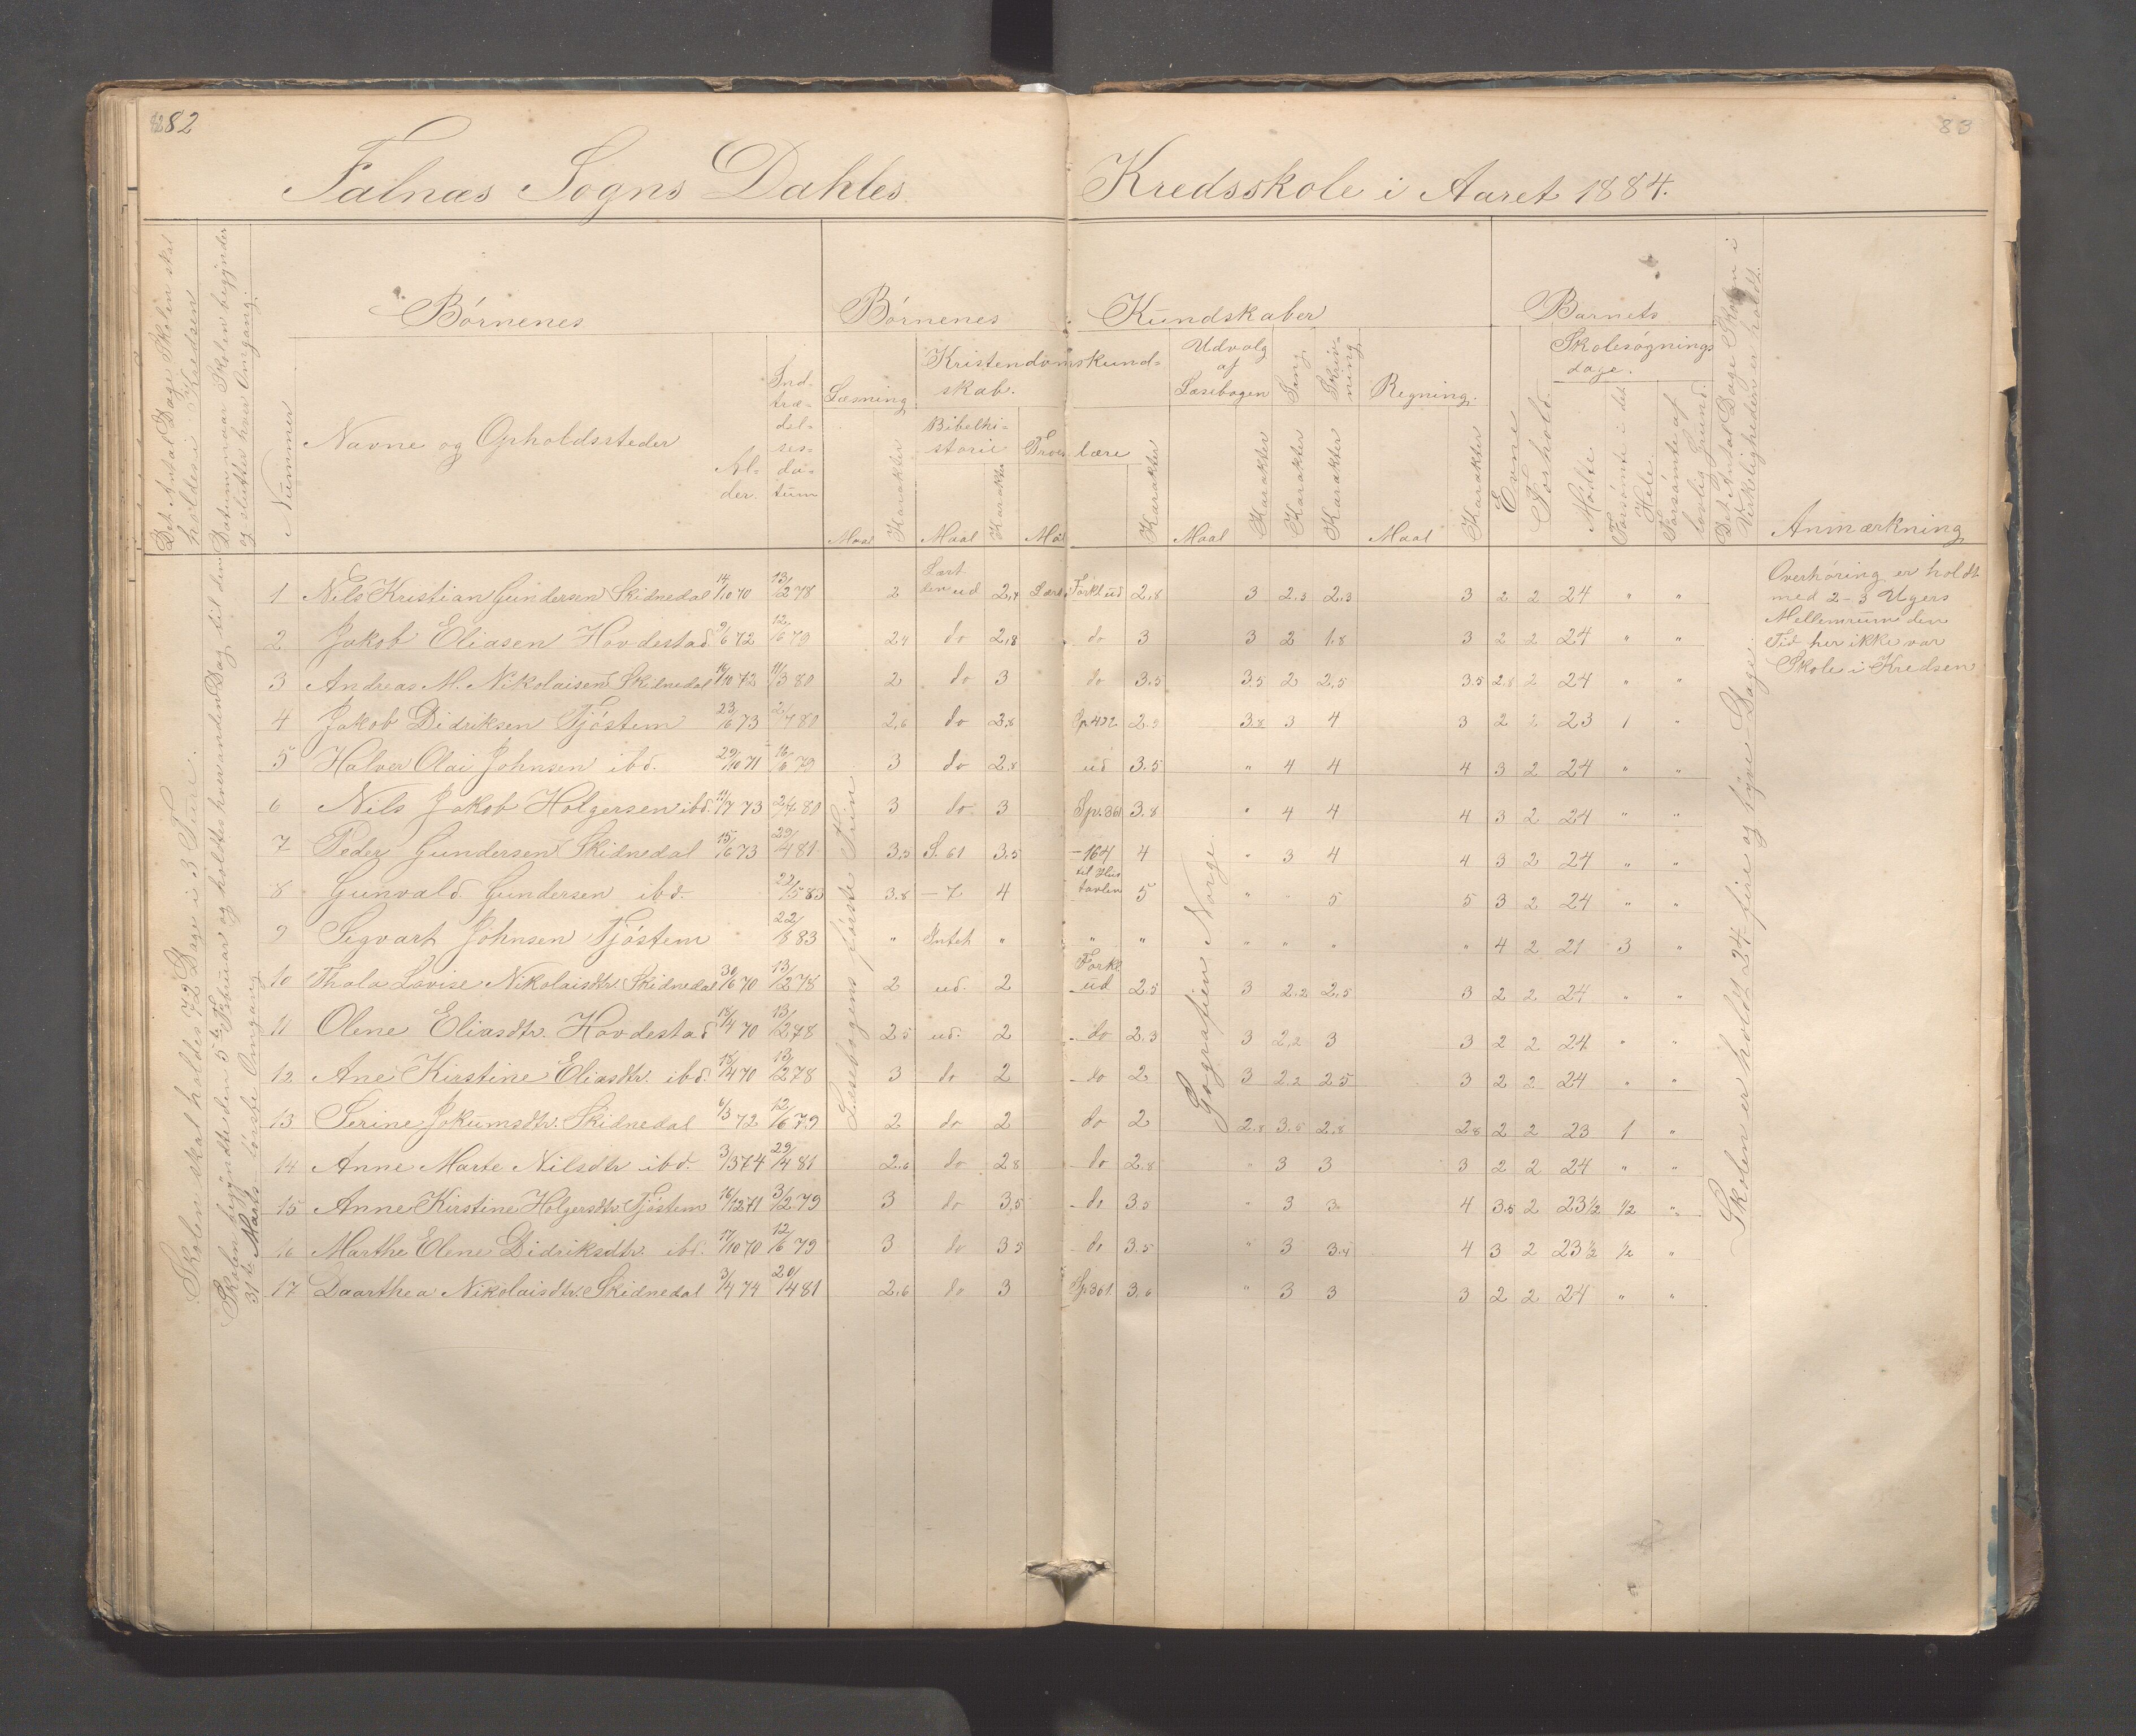 82
83
Falnæs Sogns Dahles Kredsskole i Aaret 1884.
Det Antal Dage Skolen skal holdes i Kredsen
Datum naar Skolen begynder og slutter hver Omgang.
Nummer
Børnenes
Navne og Opholdssteder
Alder.
Indtrædelsesdatum
Børnenes Kundskaber
Læsning
Maal
Karakter
Kristendomskundskab.
Bibelhistorie
Maal
Karakter
Troeslære
Maal
Karakter
Udvalg af Læsebogen
Maal
Karakter
Sang
Karakter
Skrivning
Karakter
Regning.
Maal
Karakter
Barnets
Evne
Forhold
Skolesøgningsdage.
Mødte
Forsømte i det Hele
Forsømte af lovlig Grund.
Det Antal Dage Skolen i Virkeligheden er holdt.
Anmærkning
Skolen skal holdes 72 Dage i 3 Tur.
Skolen begyndte den 5te Februar og holdtes hver anden Dag til den 31te Marts første Omgang
Læsebogens første Trin
Geografien Norge
Skolen er holdt 24 fire og tyve Dage
Overhøring er holdt
med 2-3 Ugers
Mellemrum den
Tid her ikke var
Skole i Kredsen
1 Nils Kristian Gundersen Skidnedal 14/10 70 13/2 78 2 Lært den ud 2,4 Lært Forkl ud 2,8 3 2,3 2,3 3 2 2 24 " "
2 Jakob Eliasen Hovdestad 9/6 72 12/6 79 2,4 do 2,8 do 3 3 2 1.8 3 2 2 24 " "
3 Andreas M. Nikolaisen Skidnedal 16/10 72 11/3 80 2 do 3 do 3.5 3.5 2 2,5 3.5 2.8 2 24 " "
4 Jakob Didriksen Tjøstem 23/6 73 2/7 80 2,6 do 2,8 Sp 422 2.9 3.8 3 4 3 2 2 23 1 "
5 Halver Olai Johnsen ibd. 29/10 71 16/6 79 3 do 2,8 ud 3.5 " 4 4 4 3 2 24 " "
6 Nils Jakob Holgersen ibd. 11/7 73 2/7 80 3 do 3 Sp. 361 3,8 " 4 4 4 3 2 24 " "
7 Peder Gundersen Skidnedal 15/6 73 29/4 81 3,5 S. 61 3,5 - 164 4 " 3 4 4 3 2 24 " "
8 Gunvald Gundersen ibd. 22/5 83 3.8 - 7 4 til Hus tavlen 5 " " 5 5 3 2 24 " "
9 Segvart Johnsen Tjøstem 22/8 83 " Intet " " " " " " " 4 2 21 3 "
10 Thala Lovise Nikolaisdtr. Skidnedal 30/6 70 13/2 78 2 ud. 2 Forkl ud 2.5 3 2,2 2,5 3 2 2 24 " "
11 Olene Eliasdtr. Hovdestad 15/4 70 13/2 78 2.5 ud. 2 do 2.3 3 2,2 3 3 2 2 24 " "
12 Ane Kirstine Eliasdtr. ibd. 15/4 70 13/2 78 3 do 2 do 2 3 2.2 2.5 3 2 2 24 " "
13 Serine Jokumsdtr. Skidnedal 6/3 72 12/6 79 2 do 2 do 2 2.8 3.5 2.8 2.8 2 2 23 1 "
14 Anne Marte Nilsdtr ibd. 3/3 74 29/4 81 2.6 do 2.8 do 2.8 " 3 3 3 2 2 24 " "
15 Anne Kirstine Holgersdtr. Tjøstem 16/12 71 3/2 79 3 do 3,5 do 3.5 " 3 3 4 3.5 2 23 1/2 1/2 "
16 Marthe Elene Didriksdtr. ibd. 17/10 70 12/6 79 3 do 3.5 do 3.5 " 3 3.4 4 3 2 23 1/2 1/2 "
17 Daarthea Nikolaisdtr. Skidnedal 3/4 74 20/4 81 2,6 do 3 Sp. 361 3.6 " 3 3 3 2 2 24 " "